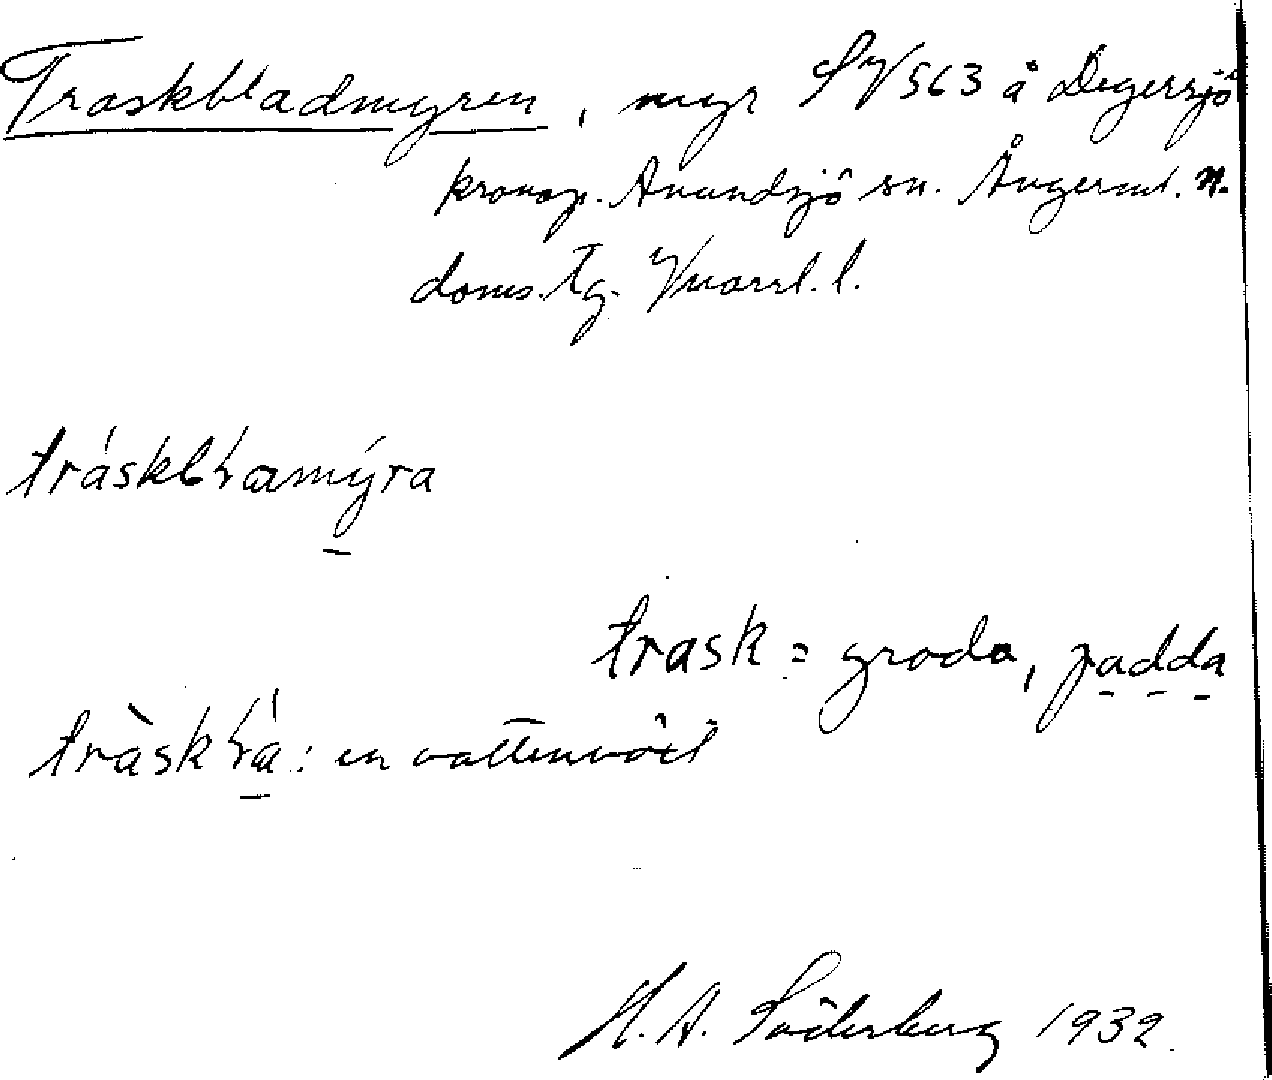 Traskbladmyren, myr SV 563 å Degersjö
kronop. Anundsjö sn. Ångerml. N.
doms. tg. Vnorrl. l.
tráskblamýra
trask = groda, padda
tràsklá: en vattenväxt
H. A. Söderberg 1932.